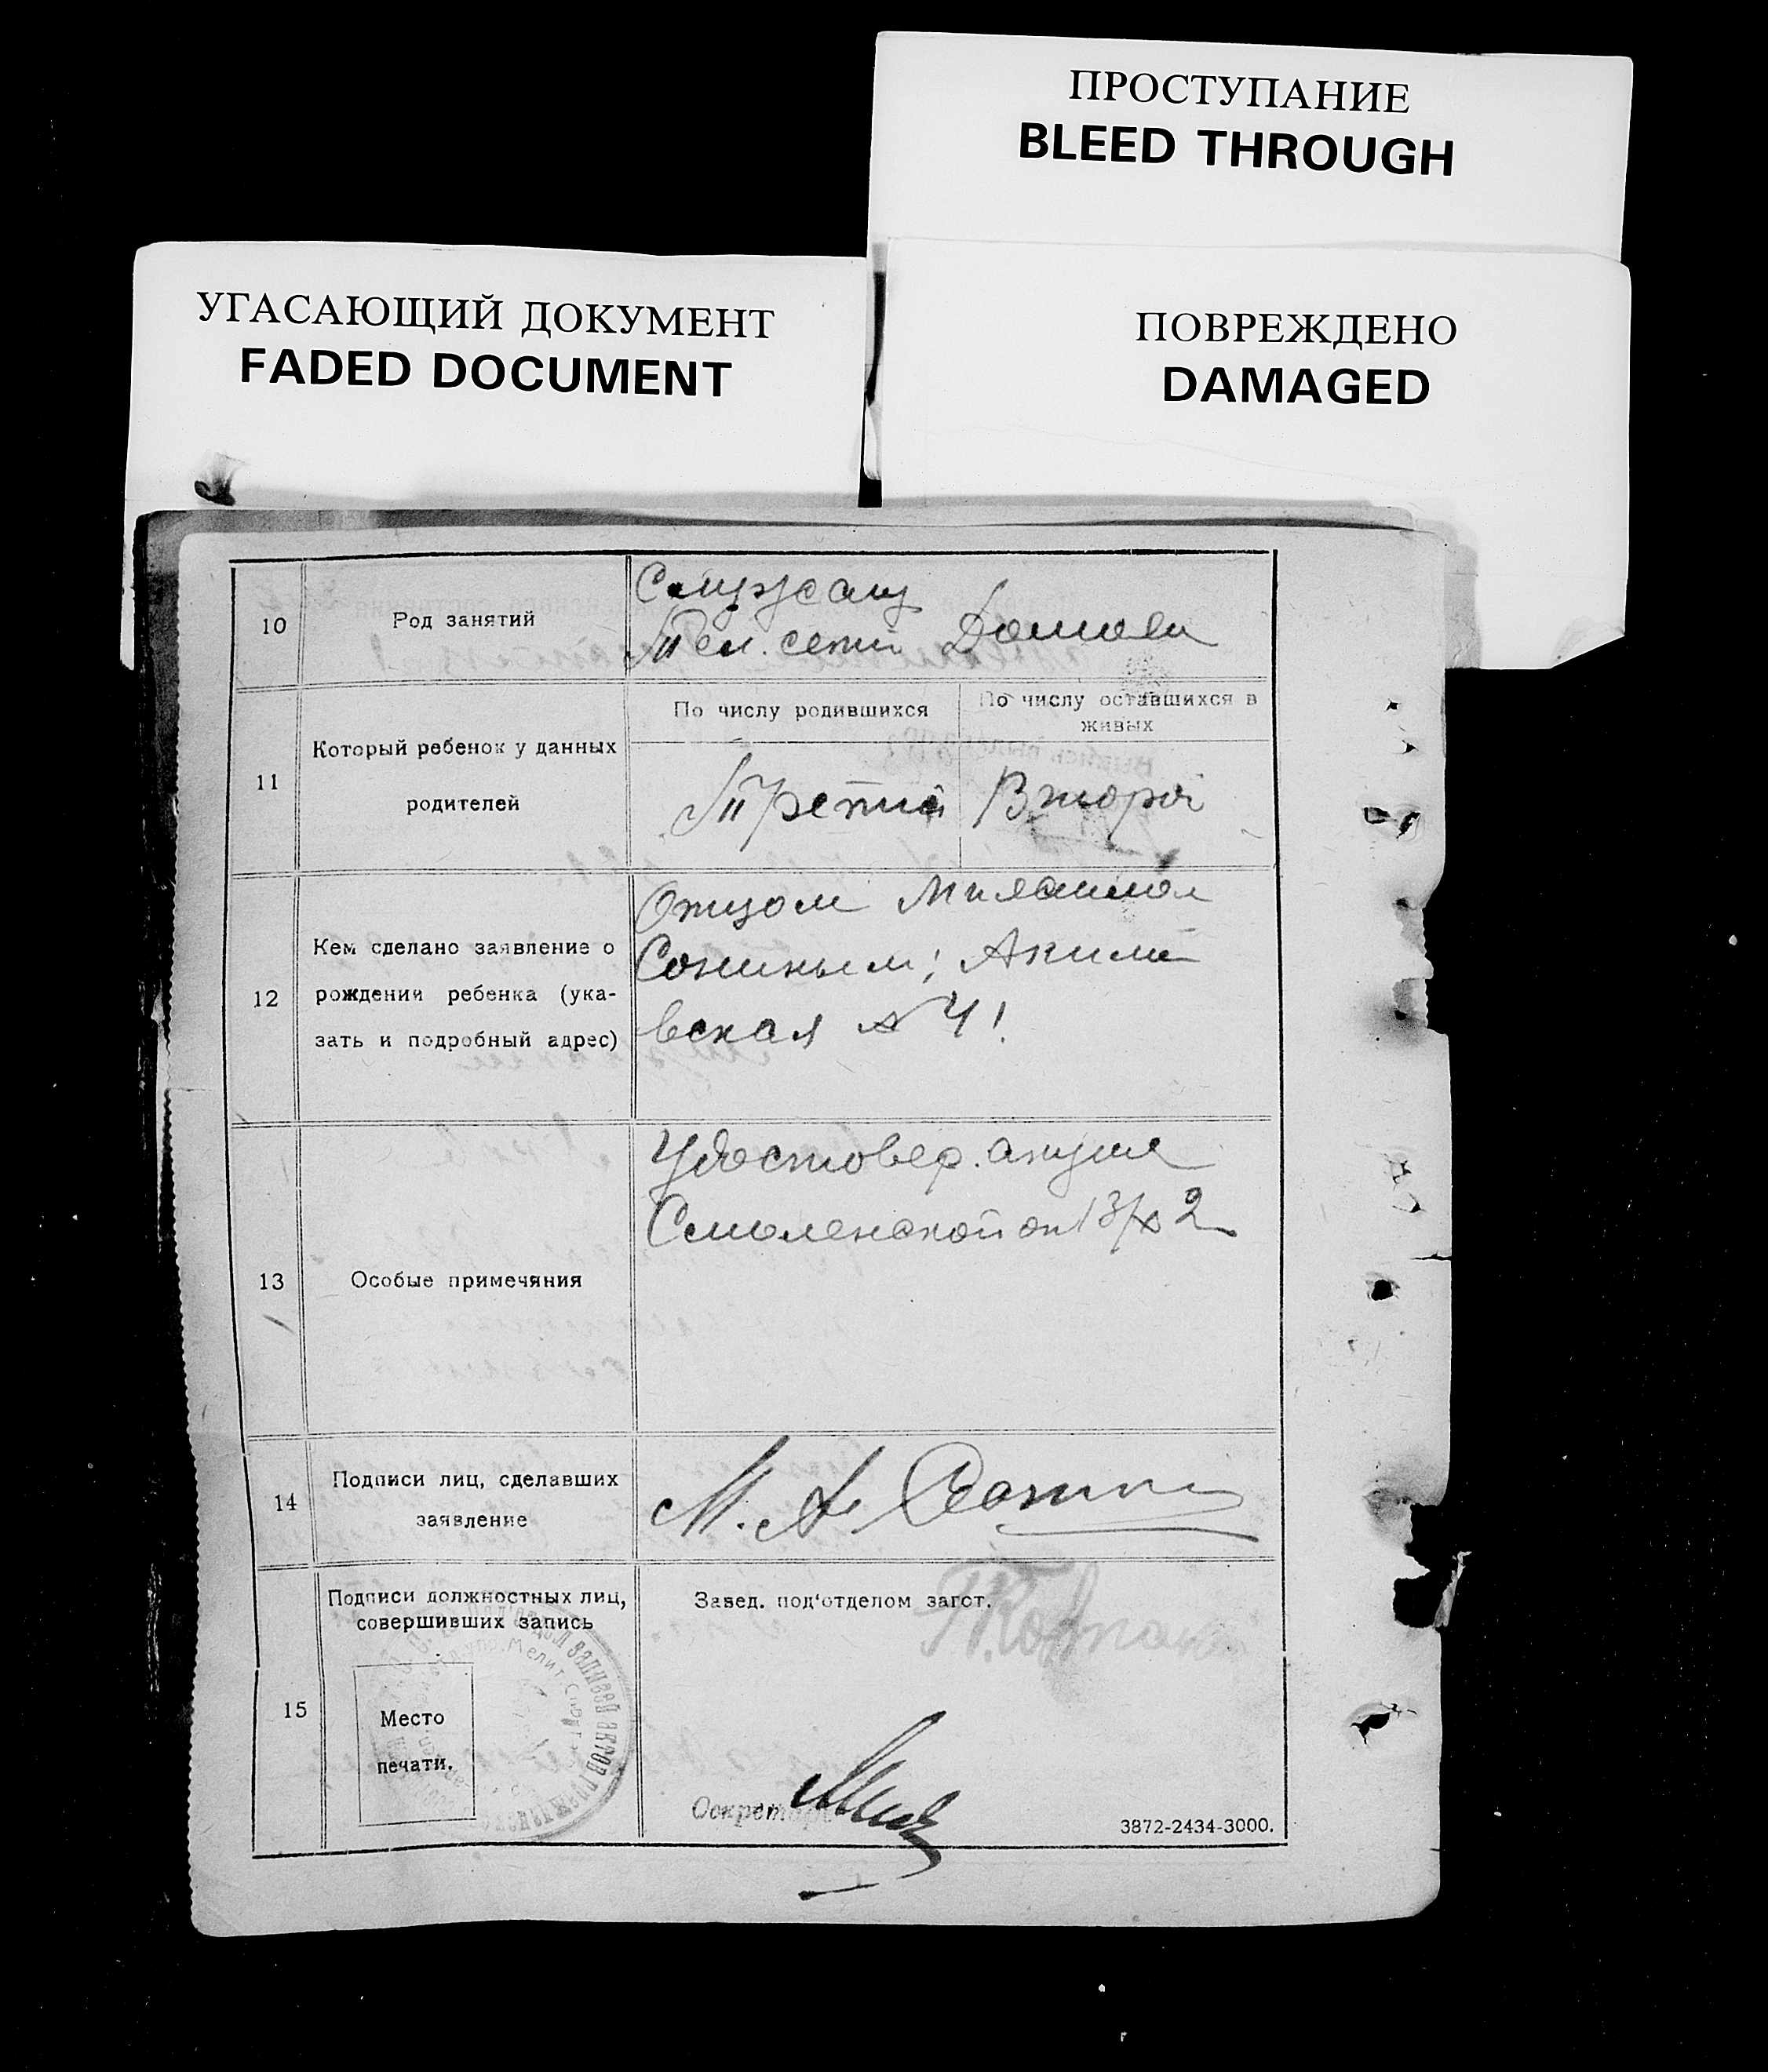 ПРОСТУПАНИЕ
BLEED THROUGH
УГАСАЮЩИЙ ДОКУМЕНТ
FADED DOCUMENT
ПОВРЕЖДЕНО
DAMAGED
10
Род занятий
Служащ
Тел. сети
11
Который ребенок у данных
родителей
По числу родившихся
По числу оставшихся в
живых
Третий
Второй
12
Кем сделано заявление о
рождении ребенка (ука-
зать и подробный адрес)
Отцом
Сониным; Акимо
вская №4!
13
Особые примечяния
Удостовер. акуше
Смоленской от 13/X
14
Подписи лиц, сделавших
заявление
М. А. Сонин
15
Подписи должностных лиц,
совершивших запись
Место
печати.
Завед. под‘отделом загст.
Секретарь
3872-2434-3000.